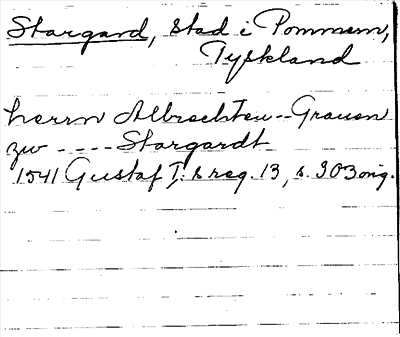 Stargard, stad i Pommern,
Tyskland
herrn Albrechten -- Grauen
zw ---- Stargardt
1541 Gustaf I:s reg. 13, s. 303 orig.